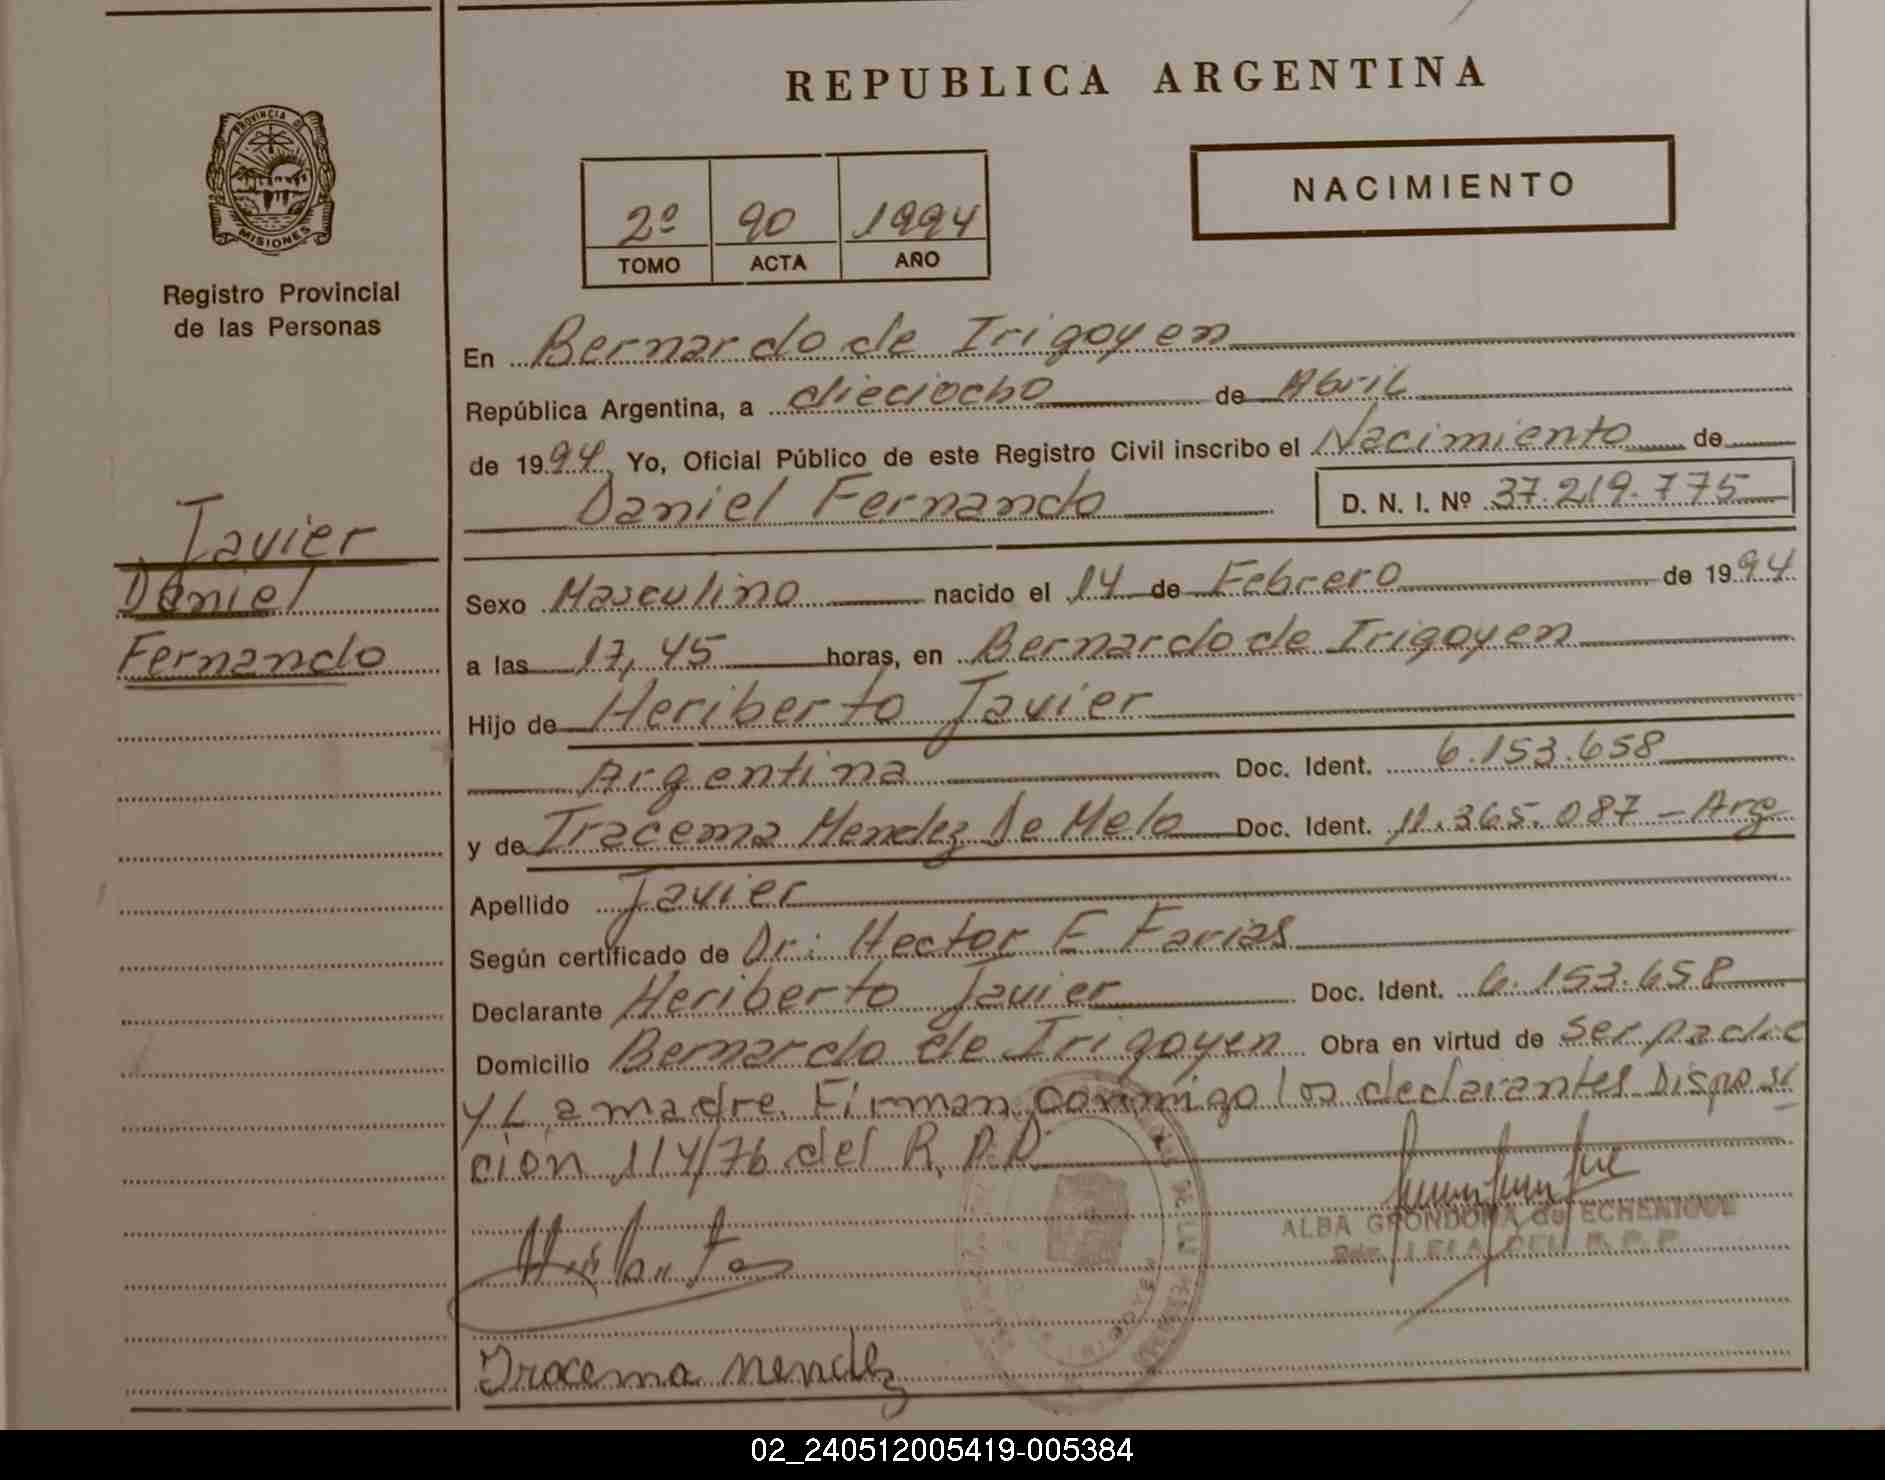 REPUBLICA ARGENTINA
PROVINCIA DE
MISIONES
Registro Provincial
de las Personas
NACIMIENTO
2º 90 1994
TOMO ACTA AÑO
En Bernardo de Irigoyen
República Argentina, a dieciocho de Abril
de 1994 Yo, Oficial Público de este Registro Civil inscribo el Nacimiento de
Daniel Fernando D. N. I. Nº 37.219.775
Javier
Daniel
Fernando
Sexo Masculino nacido el 14 de Febrero de 1994
a las 17,45 horas, en Bernardo de Irigoyen
Hijo de Heriberto Javier
Argentina Doc. Ident. 6.153.658
y de Iracema Mendez De Melo Doc. Ident. 11.365.087 - Arg
Apellido Javier
Según certificado de Dr: Hector E. Farias
Declarante Heriberto Javier Doc. Ident. 6.153.658
Domicilio Bernardo de Irigoyen Obra en virtud de ser padre
y La madre. Firman conmigo los declarantes Disposi
cion 114/76 del R.P.P.
ALBA GRONDONA de ECHENIQUE
R. P. P.
Iracema Mendez
02_240512005419-005384